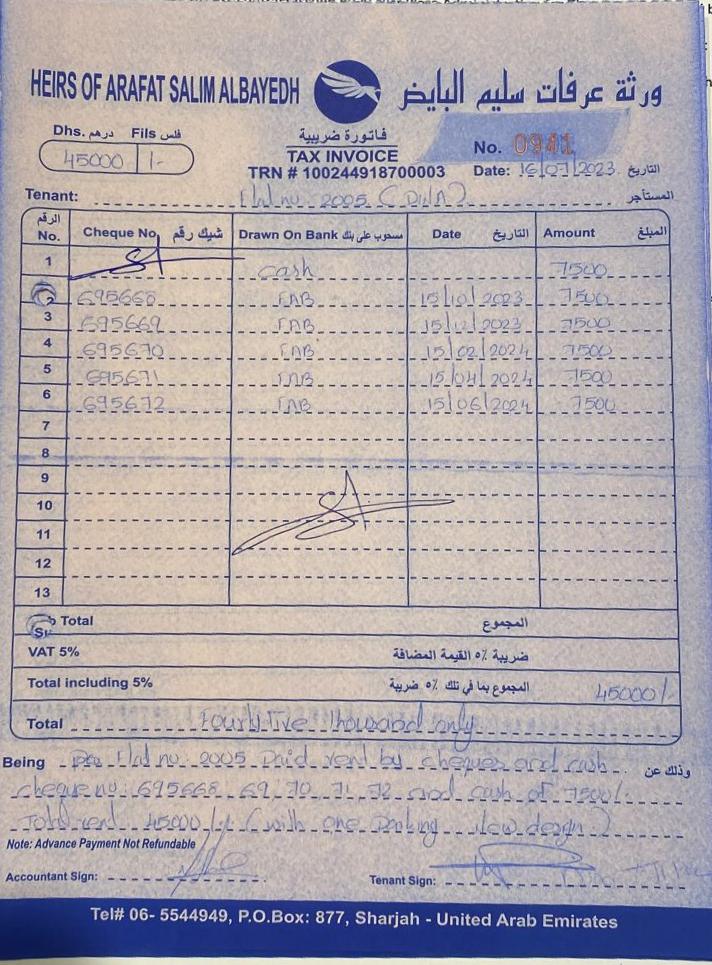 HEIRS OF ARAFAT SALIM ALBAYEDH ورثة عرفات سليم البايض
Dhs. درهم Fils فلس
45000 /-
فاتورة ضريبية
TAX INVOICE
TRN # 100244918700003
No. 0941
Date: 16/07/2023 التاريخ
Tenant: Flat no. 2005 المستأجر
الرقم No. Cheque No. شيك رقم Drawn On Bank مسحوب على بنك Date التاريخ Amount المبلغ
1 cash 7500
2 695668 FAB 15/10/2023 7500
3 695669 FAB 15/12/2023 7500
4 695670 FAB 15/02/2024 7500
5 695671 FAB 15/04/2024 7500
6 695672 FAB 15/06/2024 7500
7
8
9
10
11
12
13
Total المجموع
VAT 5% ضريبة ٥% القيمة المضافة
Total including 5% المجموع بما في تلك ٥% ضريبة 45000/-
Total Fourty Five thousand only
Being Flat no. 2005 Paid rent by cheques and cash وذلك عن
cheque no: 695668, 69, 70, 71, 72 and cash of 7500/-
Total rent 45000/- (with one Parking
Note: Advance Payment Not Refundable
Accountant Sign: Tenant Sign:
Tel# 06- 5544949, P.O.Box: 877, Sharjah - United Arab Emirates